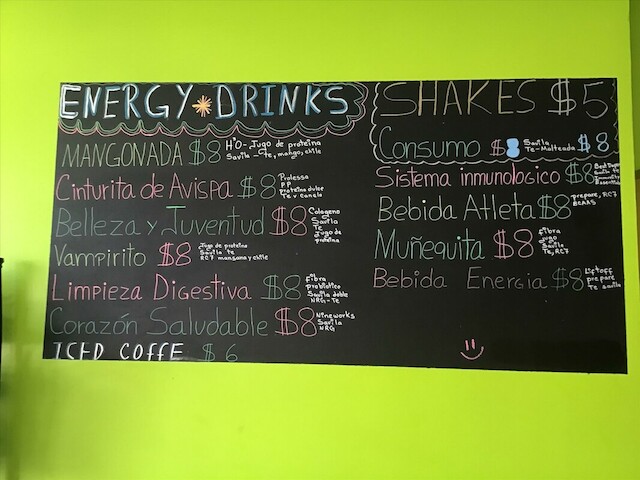 ENERGY DRINKS
MANGONADA $8
H³O - Jugo de proteina
Savila - Te, mango, chile
Cinturita de Avispa $8
Prolessa
PP
proteina dulce
Te v canela
Belleza y Juventud $8
Colageno
Savila
Te
Jugo de
proteina
Vampirito $8
Jugo de proteina
Savila te
RC7 manzana y chile
Limpieza Digestiva $8
fibra
probiotico
Savila doble
NRG - Te
Corazón Saludable $8
Nineworks
Savila
NRG
ICED COFFE $6
SHAKES $5
Consumo $8
Savila
Te - Malteada $8
Sistema inmunologico $8
Savila te
Bebida Atleta $8
prepare, RC7
BCAAS
Muñequita $8
fibra
Jugo
Savila
Te, RC7
Bebida Energia $8
Liftoff
prepare
Te savila